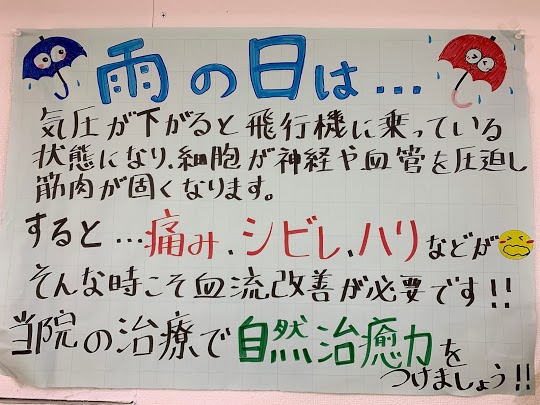 雨の日は...
気圧が下がると飛行機に乗っている
状態になり、細胞が神経や血管を圧迫し
筋肉が固くなります。
すると...痛み、シビレ、ハリなどが
そんな時こそ血流改善が必要です!!
当院の治療で自然治癒力を
つけましょう!!